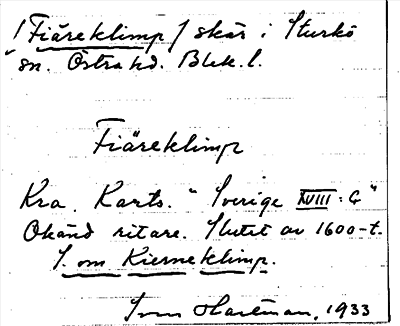 [Fiäreklimp] skär i Sturkö
sn. Östra hd. Blek. l.
Fiäreklimp
Kra. Karts. "Sverige XVIII: G"
Okänd ritare. Slutet av 1600-t.
S. om Kierneklimp.
Sven Hartman, 1933